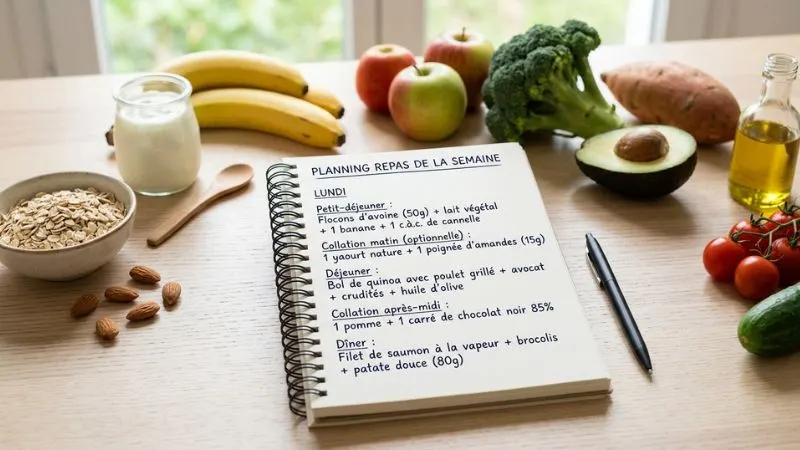 PLANNING REPAS DE LA SEMAINE
LUNDI
Petit-déjeuner :
Flocons d'avoine (50g) + lait végétal
+ 1 banane + 1 c.à.c. de cannelle
Collation matin (optionnelle) :
1 yaourt nature + 1 poignée d'amandes (15g)
Déjeuner :
Bol de quinoa avec poulet grillé + avocat
+ crudités + huile d'olive
Collation après-midi :
1 pomme + 1 carré de chocolat noir 85%
Dîner :
Filet de saumon à la vapeur + brocolis
+ patate douce (80g)